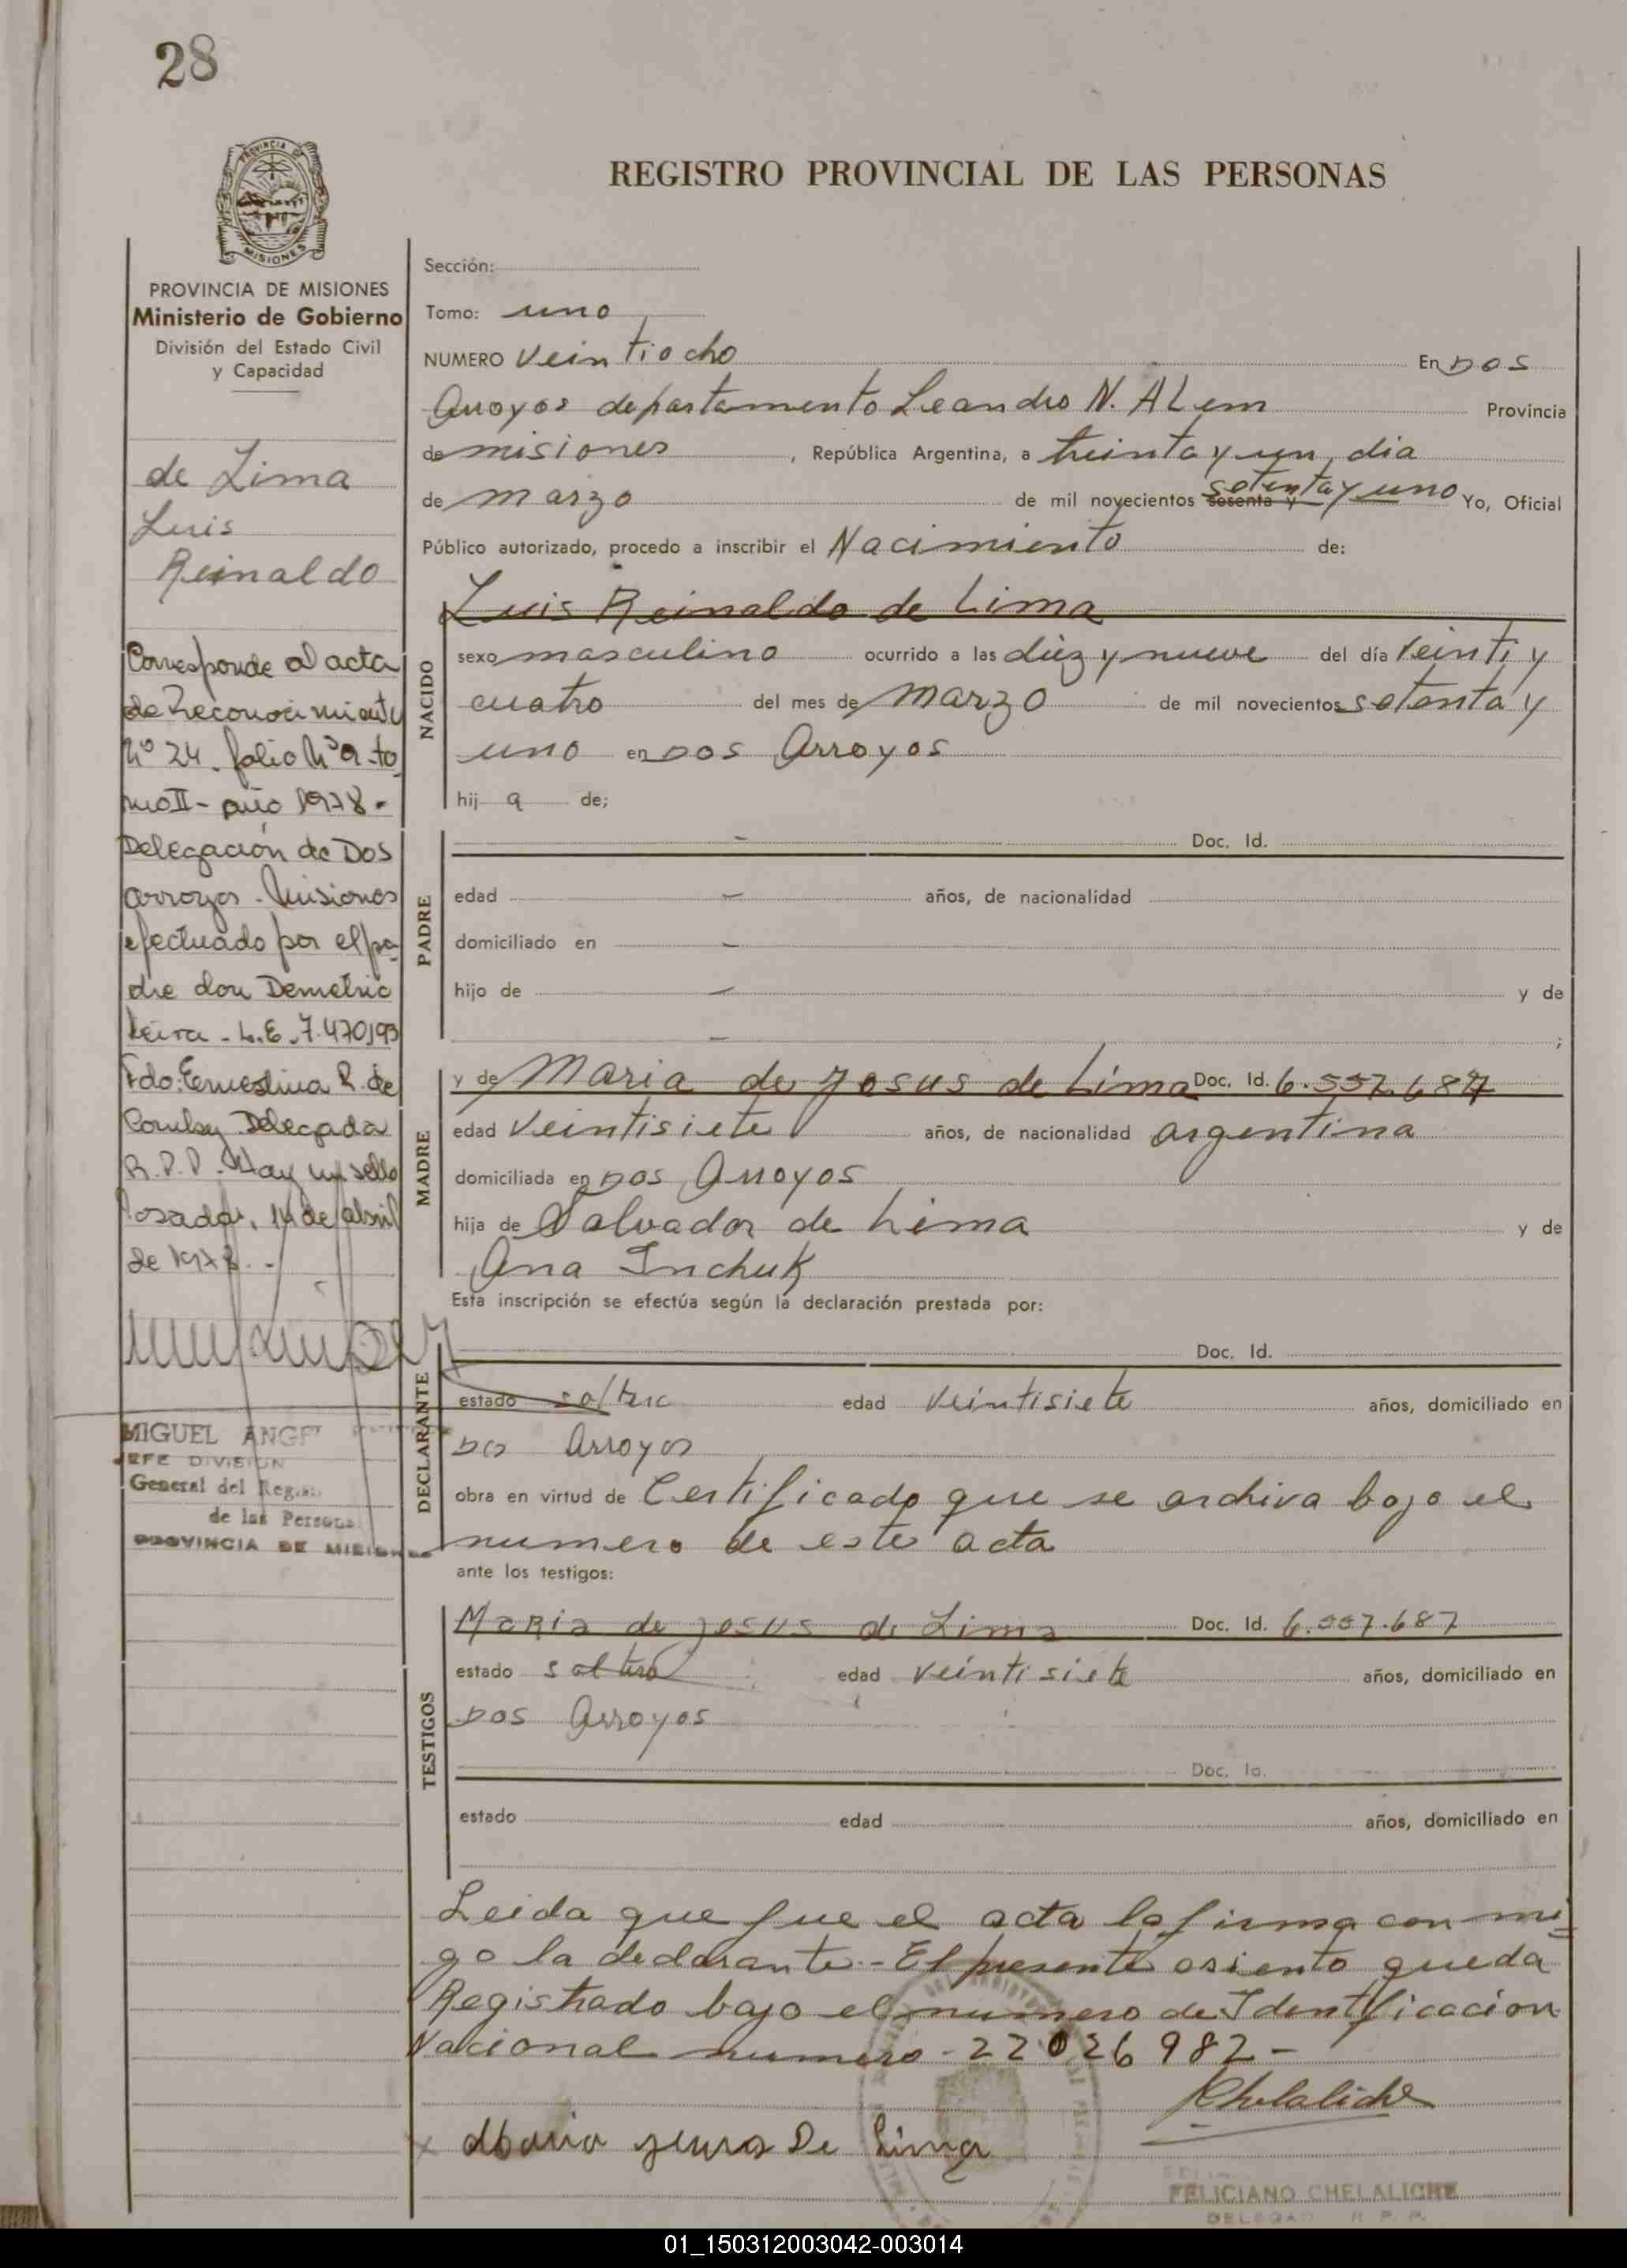 28
REGISTRO PROVINCIAL DE LAS PERSONAS
PROVINCIA DE
MISIONES
PROVINCIA DE MISIONES
Ministerio de Gobierno
División del Estado Civil
y Capacidad
de Lima
Luis
Reinaldo
Corresponde al acta
de Reconocimiento
Nº 24. folio Nº 9 - to
mo II - año 1978 -
Delegación de Dos
Arroyos - Misiones
efectuado por el pa-
dre don Demetrio
L.E. 7.470193
Fdo: Ernestina R. de
Delegada
R.P.P. Hay un sello
Posadas, 14 de abril
de 1978. -
MIGUEL ANGE
JEFE DIVISION
General del Regis
de las Persona
PROVINCIA DE MISIONES
Sección:
Tomo: uno
NUMERO veintiocho En Dos
Arroyos departamento Leandro N. ALem Provincia
de misiones, República Argentina, a treinta y un dia
de marzo de mil novecientos sesenta y setenta y uno Yo, Oficial
Público autorizado, procedo a inscribir el Nacimiento de:
Luis Reinaldo de Lima
NACIDO
sexo masculino ocurrido a las diez y nueve del día veinti y
cuatro del mes de marzo de mil novecientos setenta y
uno en Dos Arroyos
hij a de;
PADRE
— Doc. Id.
edad — años, de nacionalidad
domiciliado en —
hijo de — y de
— ;
MADRE
y de Maria de Jesus de Lima Doc. Id. 6.557.687
edad veintisiete años, de nacionalidad argentina
domiciliada en Dos Arroyos
hija de Salvador de Lima y de
Ana Inchuk
Esta inscripción se efectúa según la declaración prestada por:
DECLARANTE
Doc. Id.
estado soltera edad veintisiete años, domiciliado en
Dos Arroyos
obra en virtud de Certificado que se archiva bajo el
numero de este acta
ante los testigos:
TESTIGOS
Maria de Jesus de Lima Doc. Id. 6.557.687
estado soltera edad veintisiete años, domiciliado en
Dos Arroyos
Doc. Id.
estado edad años, domiciliado en
Leida que fue el acta la firma con mi=
go la declarante.- El presente asiento queda
Registrado bajo el numero de Identificacion
Nacional numero - 22026982 -
Chelaliche
x Maria Jesus De Lima
FELICIANO CHELALICHE
DELEGAD R. P. P.
01_150312003042-003014